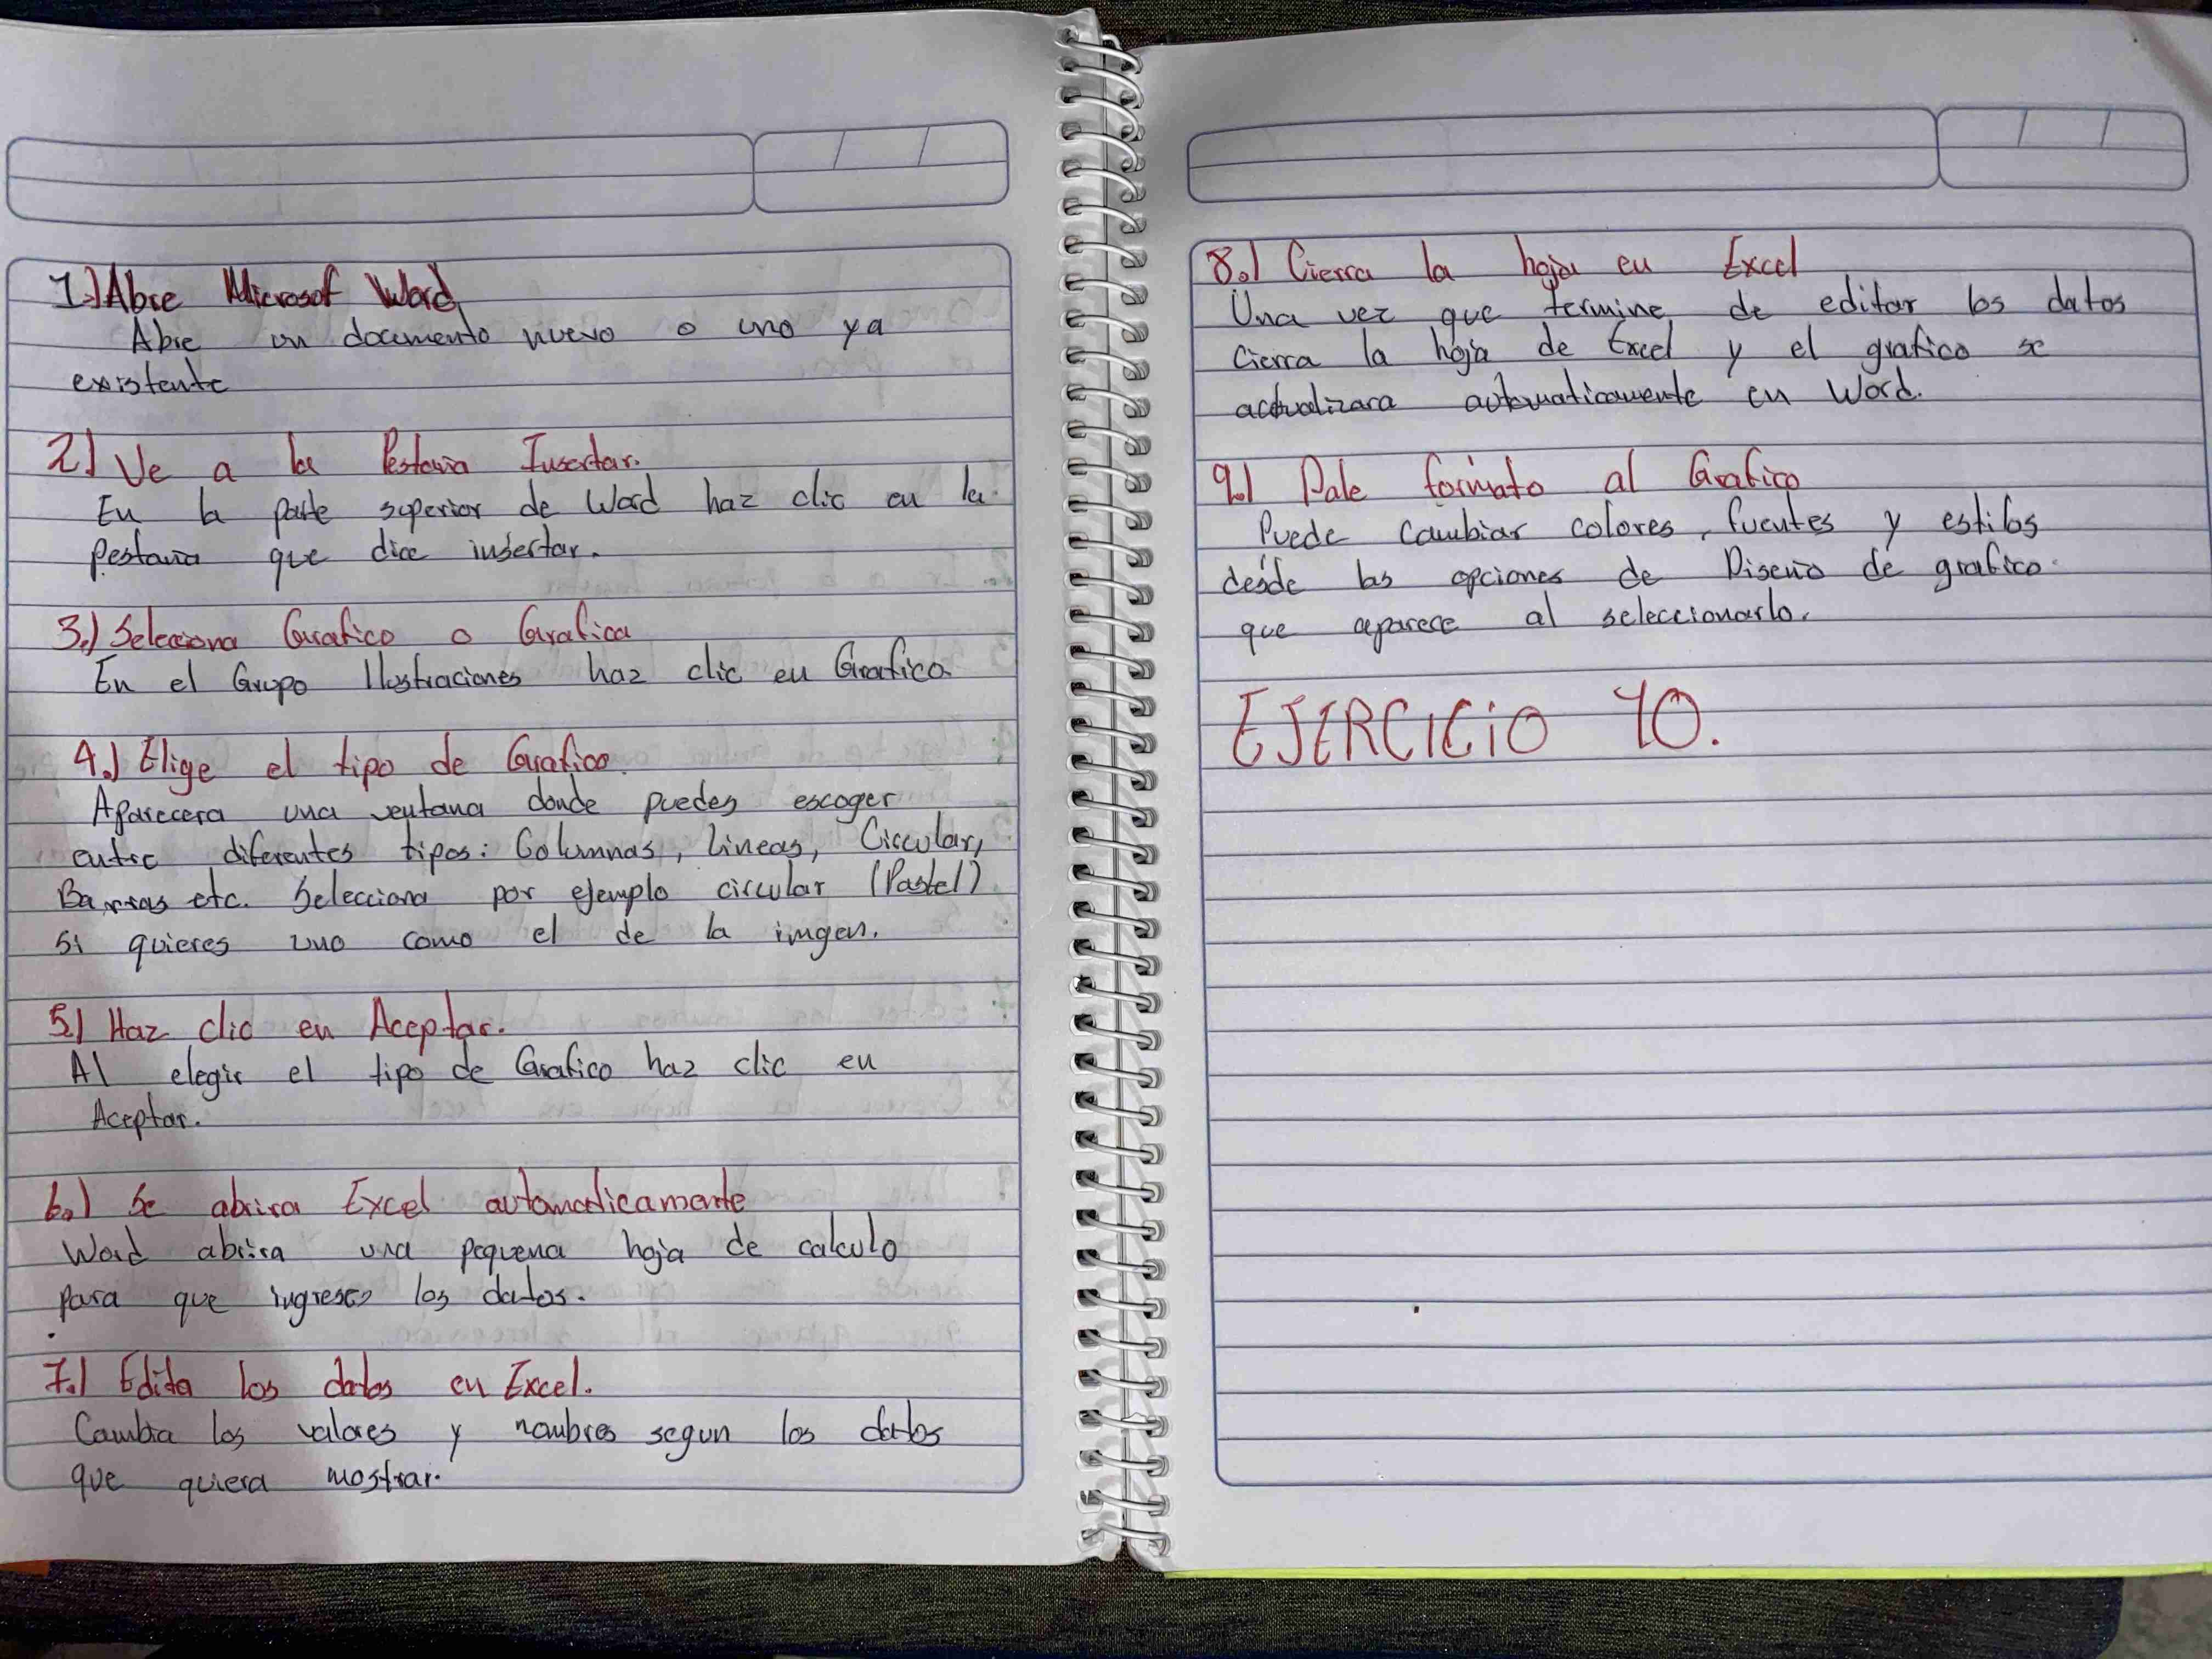 1.) Abre Microsof Word
Abre un documento nuevo o uno ya
existente
2.) Ve a la Pestaña Insertar.
En la parte superior de Word haz clic en la
Pestaña que dice insertar.
3.) Selecciona Grafico o Grafica
En el Grupo Ilustraciones haz clic en Grafica
4.) Elige el tipo de Grafico.
Aparecera una ventana donde puedes escoger
entre diferentes tipos: Columnas, Lineas, Circular,
Barras etc. Selecciona por ejemplo circular (Pastel)
si quieres uno como el de la imgen.
5.) Haz clic en Aceptar.
Al elegir el tipo de Grafico haz clic en
Aceptar.
6.) Se abrira Excel automaticamente
Word abrira una pequena hoja de calculo
para que ingreses los datos.
7.) Edita los datos en Excel.
Cambia los valores y nombres segun los datos
que quiera mostrar.
8.) Cierra la hoja en Excel
Una vez que termine de editar los datos
cierra la hoja de Excel y el grafico se
actualizara automaticamente en Word.
9.) Dale formato al Grafico
Puede cambiar colores, fuentes y estilos
desde las opciones de Diseño de grafico
que aparece al seleccionarlo.
EJERCICIO 10.